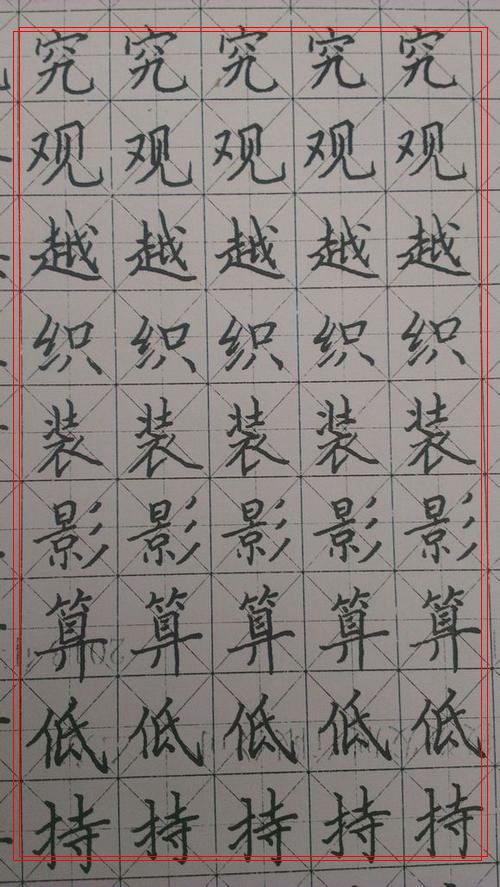 究究究究究
观观观观观
越越越越越
织织织织织
装装装装装
影影影影影
算算算算算
低低低低低
持持持持持